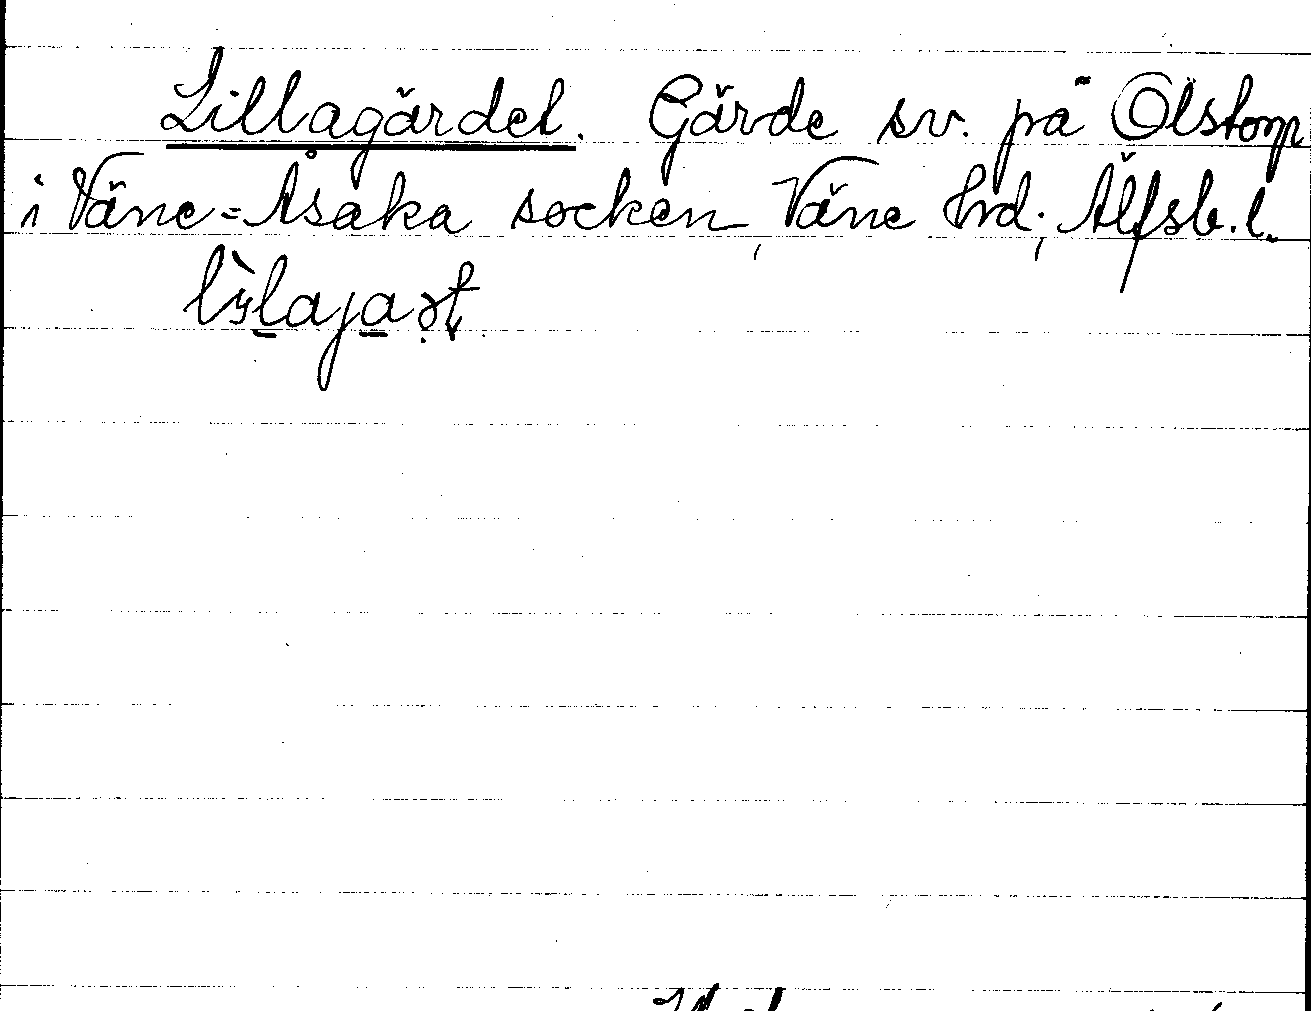 Lillagärdet. Gärde sv. på Ölstorp
i Väne=Åsaka socken, Väne hrd; Älfsb. l.